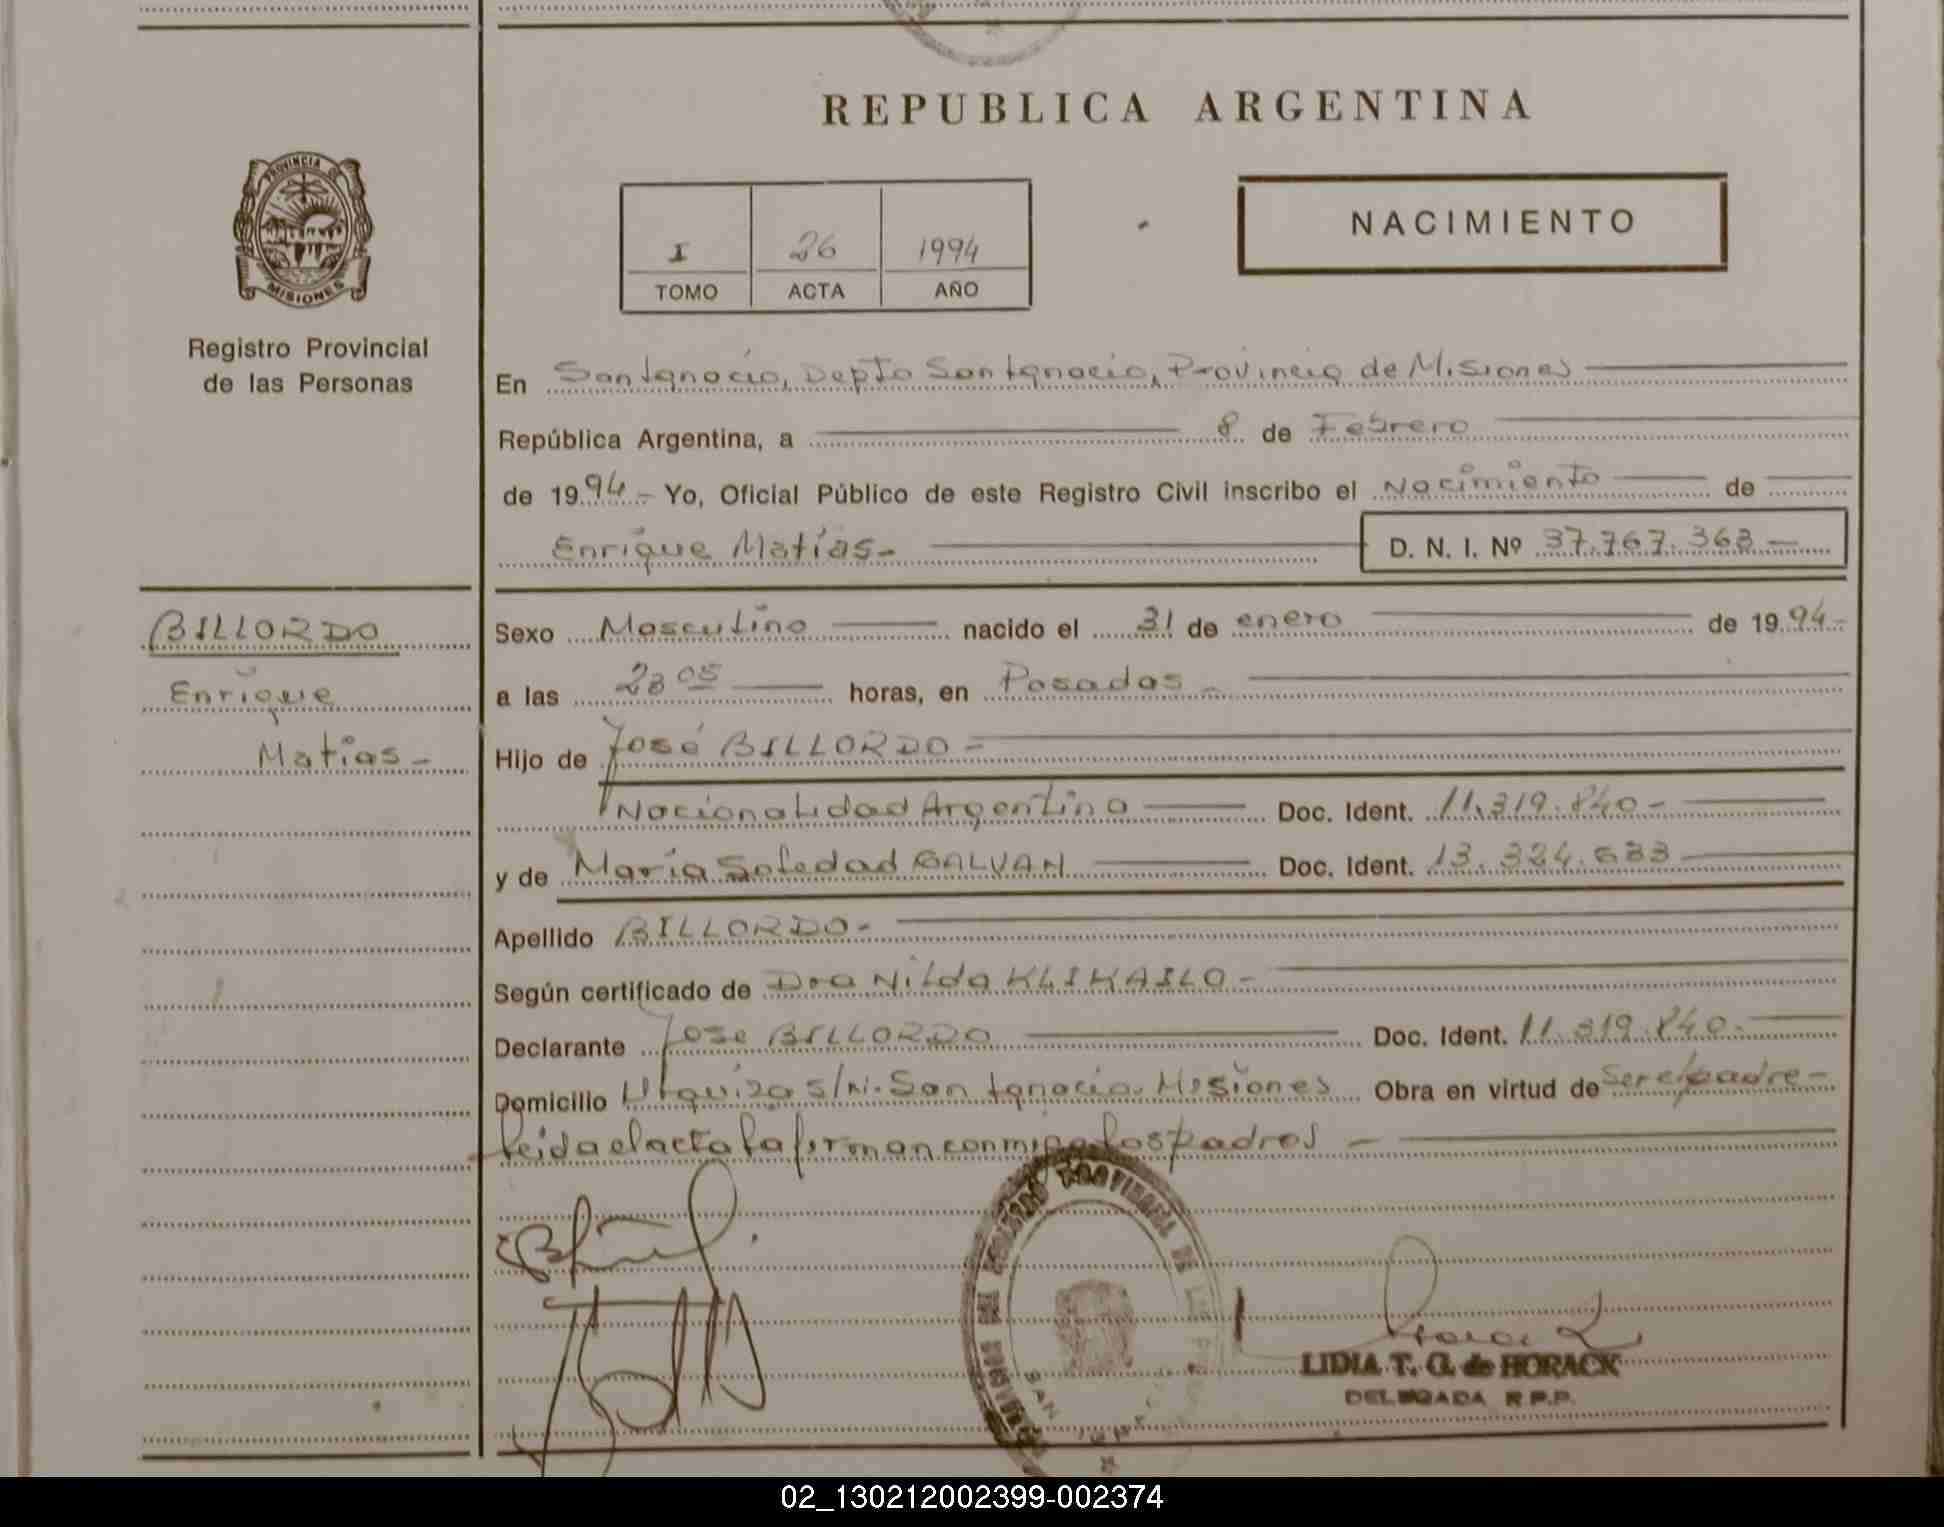 REPUBLICA ARGENTINA
PROVINCIA DE
MISIONES
Registro Provincial
de las Personas
I 26 1994
TOMO ACTA AÑO
NACIMIENTO
En San Ignacio, Depto San Ignacio, Provincia de Misiones
República Argentina, a 8 de Febrero
de 1994.- Yo, Oficial Público de este Registro Civil inscribo el Nacimiento de
Enrique Matías- D. N. I. Nº 37.767.368-
BILLORDO
Enrique
Matías-
Sexo Masculino nacido el 31 de enero de 1994-
a las 23 05 horas, en Posadas-
Hijo de José BILLORDO-
Nacionalidad Argentina Doc. Ident. 11.319.840-
y de María Soledad GALVAN Doc. Ident. 13.324.633
Apellido BILLORDO-
Según certificado de Dra Nilda
Declarante Jose BILLORDO Doc. Ident. 11.319.840-
Domicilio Urquiza s/n. San Ignacio. Misiones Obra en virtud de ser el padre-
leida el acta la firman conmigo los padres-
REGISTRO PROVINCIAL DE LAS
SAN
LIDIA T. G. de HORACK
DELEGADA R.P.P.
02_130212002399-002374